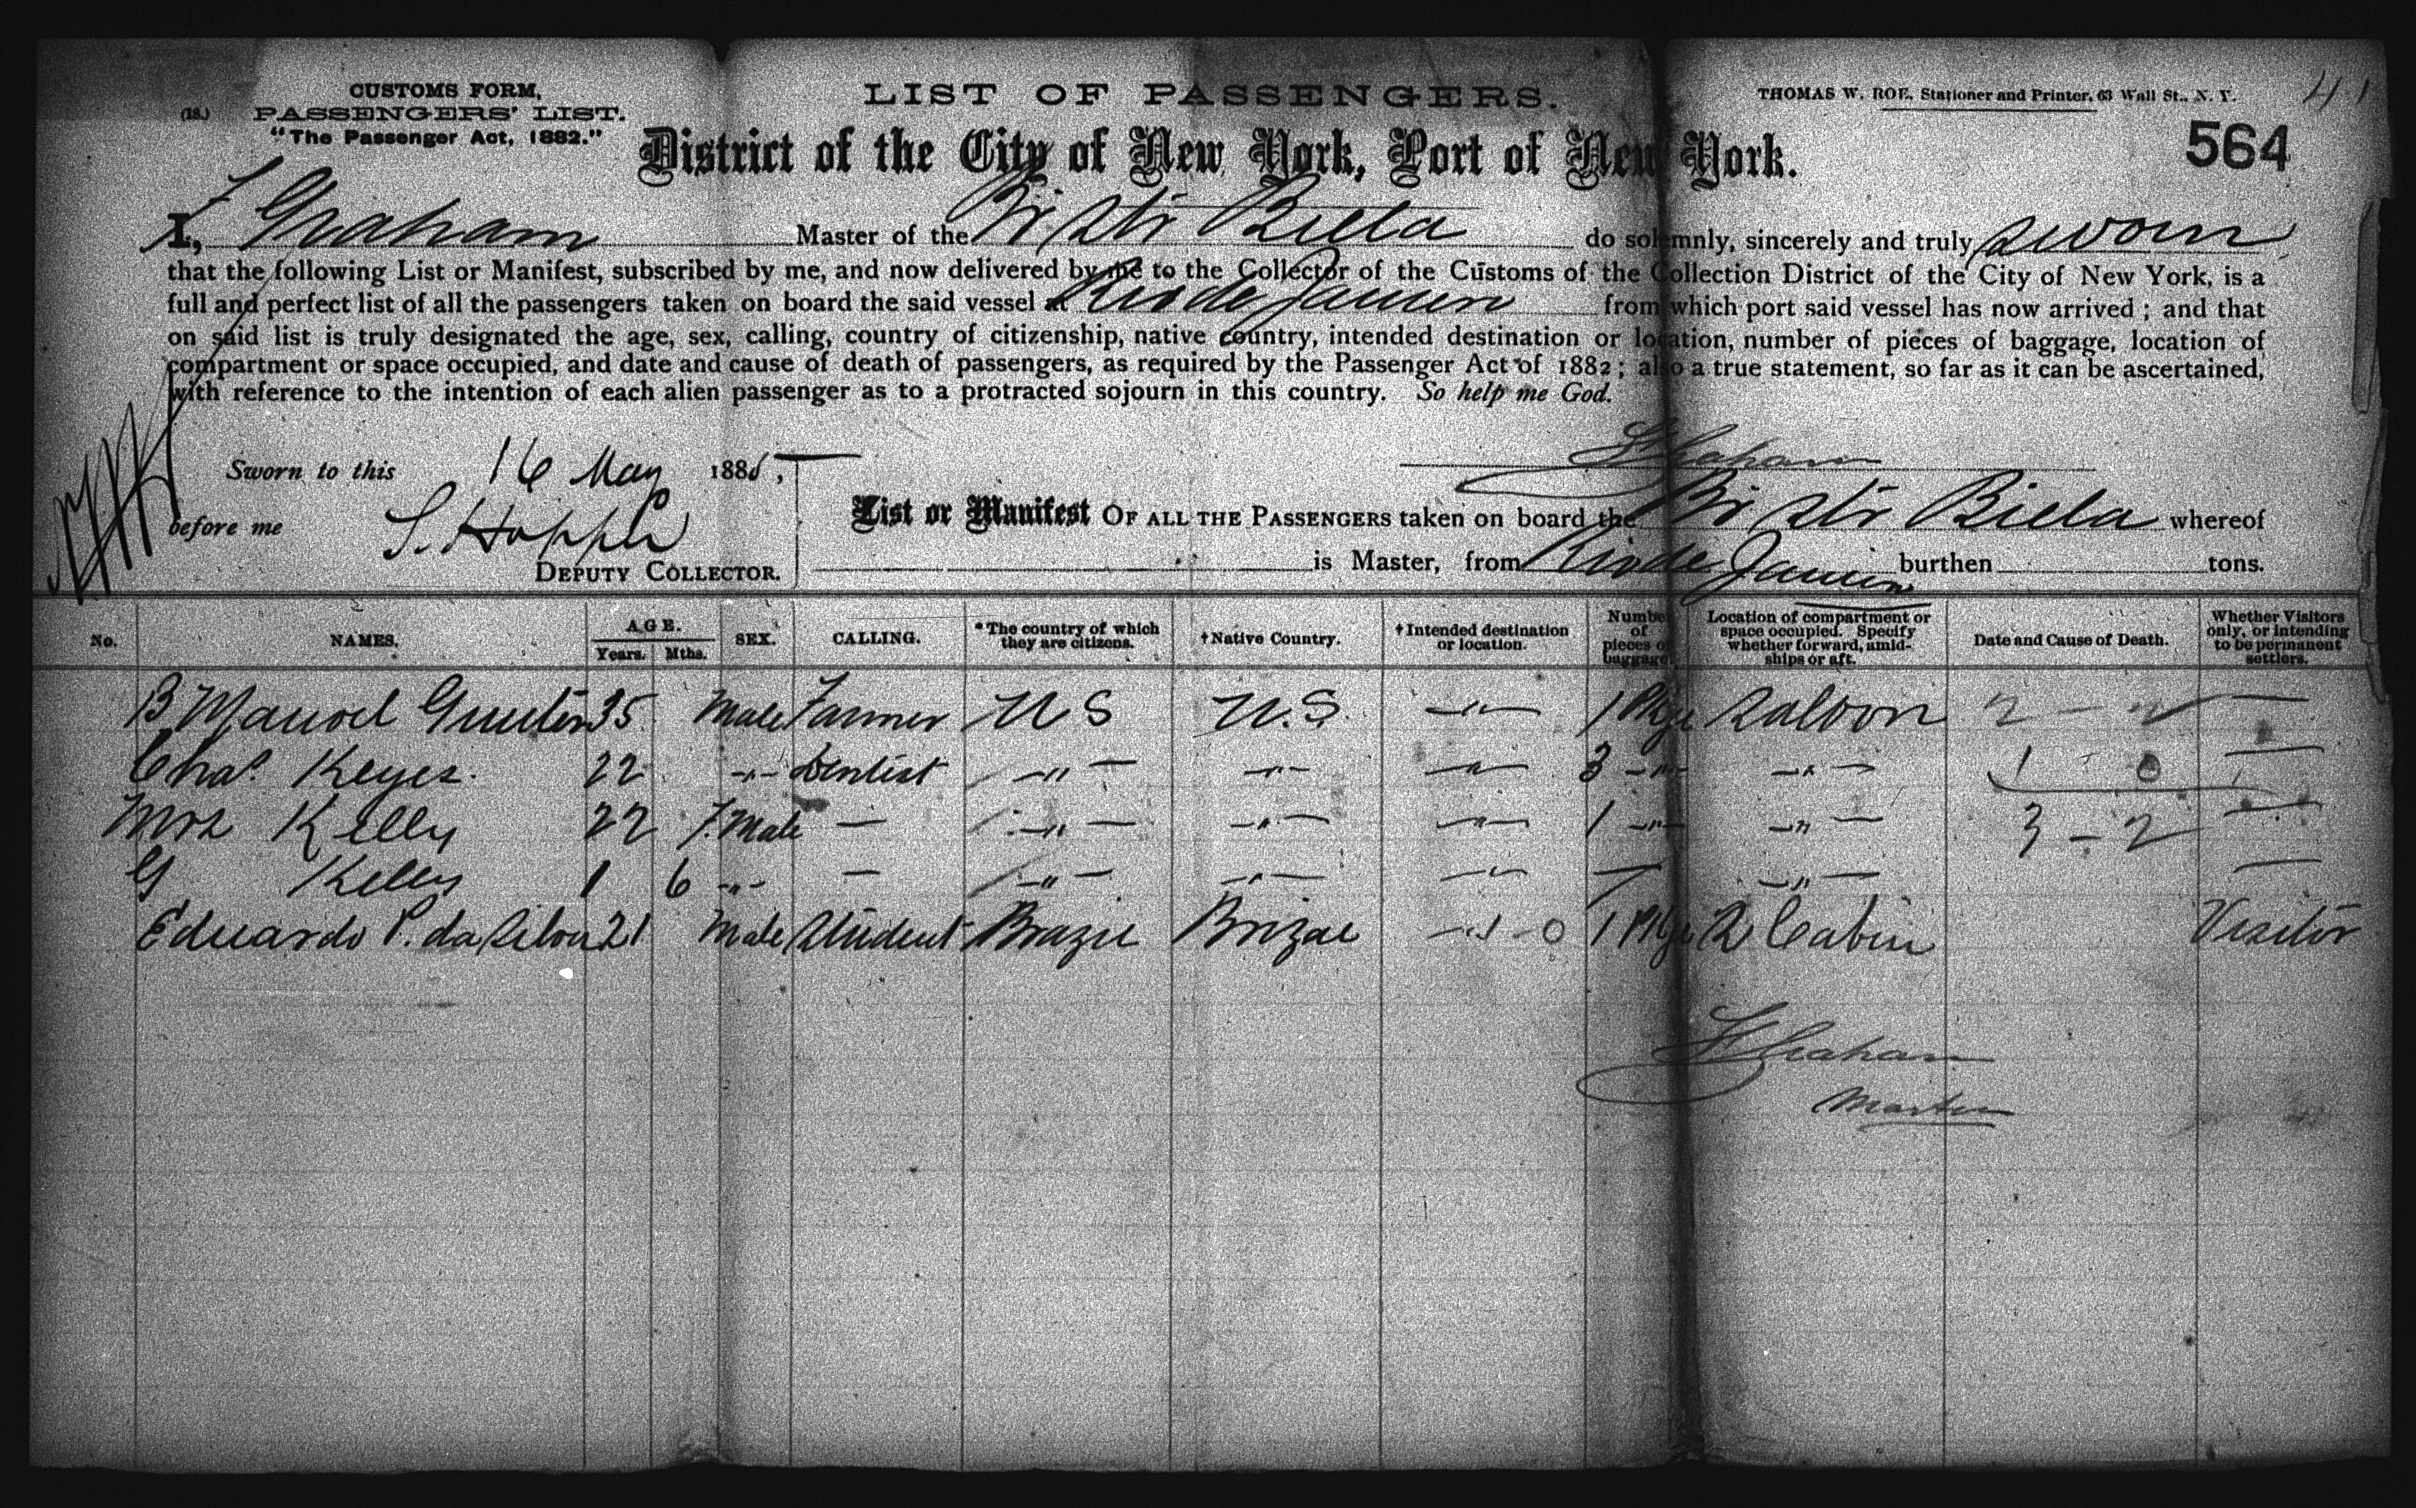 CUSTOMS FORM,
(18.) PASSENGERS' LIST.
"The Passenger Act, 1882."
LIST OF PASSENGERS.
THOMAS W. ROE, Stationer and Printer, 63 Wall St., N. Y.
41
564
District of the City of New York, Port of New York.
I, F Graham Master of the Br Str Biela do solemnly, sincerely and truly sworn
that the following List or Manifest, subscribed by me, and now delivered by me to the Collector of the Customs of the Collection District of the City of New York, is a
full and perfect list of all the passengers taken on board the said vessel at Rio de Janeiro from which port said vessel has now arrived; and that
on said list is truly designated the age, sex, calling, country of citizenship, native country, intended destination or location, number of pieces of baggage, location of
compartment or space occupied, and date and cause of death of passengers, as required by the Passenger Act of 1882; also a true statement, so far as it can be ascertained,
with reference to the intention of each alien passenger as to a protracted sojourn in this country. So help me God.
F Graham
Sworn to this 16 May 188
before me S. Hopper
DEPUTY COLLECTOR.
List or Manifest OF ALL THE PASSENGERS taken on board the Br Str Biela whereof
is Master, from Rio de Janeiro burthen tons.
No. NAMES. AGE. Years. Mths. SEX. CALLING. *The country of which they are citizens. †Native Country. †Intended destination or location. Number of pieces of baggage. Location of compartment or space occupied. Specify whether forward, amidships or aft. Date and Cause of Death. Whether Visitors only, or intending to be permanent settlers.
B Manoel 35 Male Farmer U S U.S. —"— 1 Pkge Saloon 2 - 2 —
Chas. Keyes. 22 -"- Dentist —"— —"— —"— 3 -"- —"— 1 0 —
Mrs Kelly 22 F.Male — —"— —"— —"— 1 -"- —"— 3 - 2 —
G Kelly 1 6 -"- — —"— —"— —"— — —"— —
Eduardo P. da Silva 21 Male Student Brazil Brizal —"— 0 1 Pkge 2 Cabin Visitor
F Graham
Master